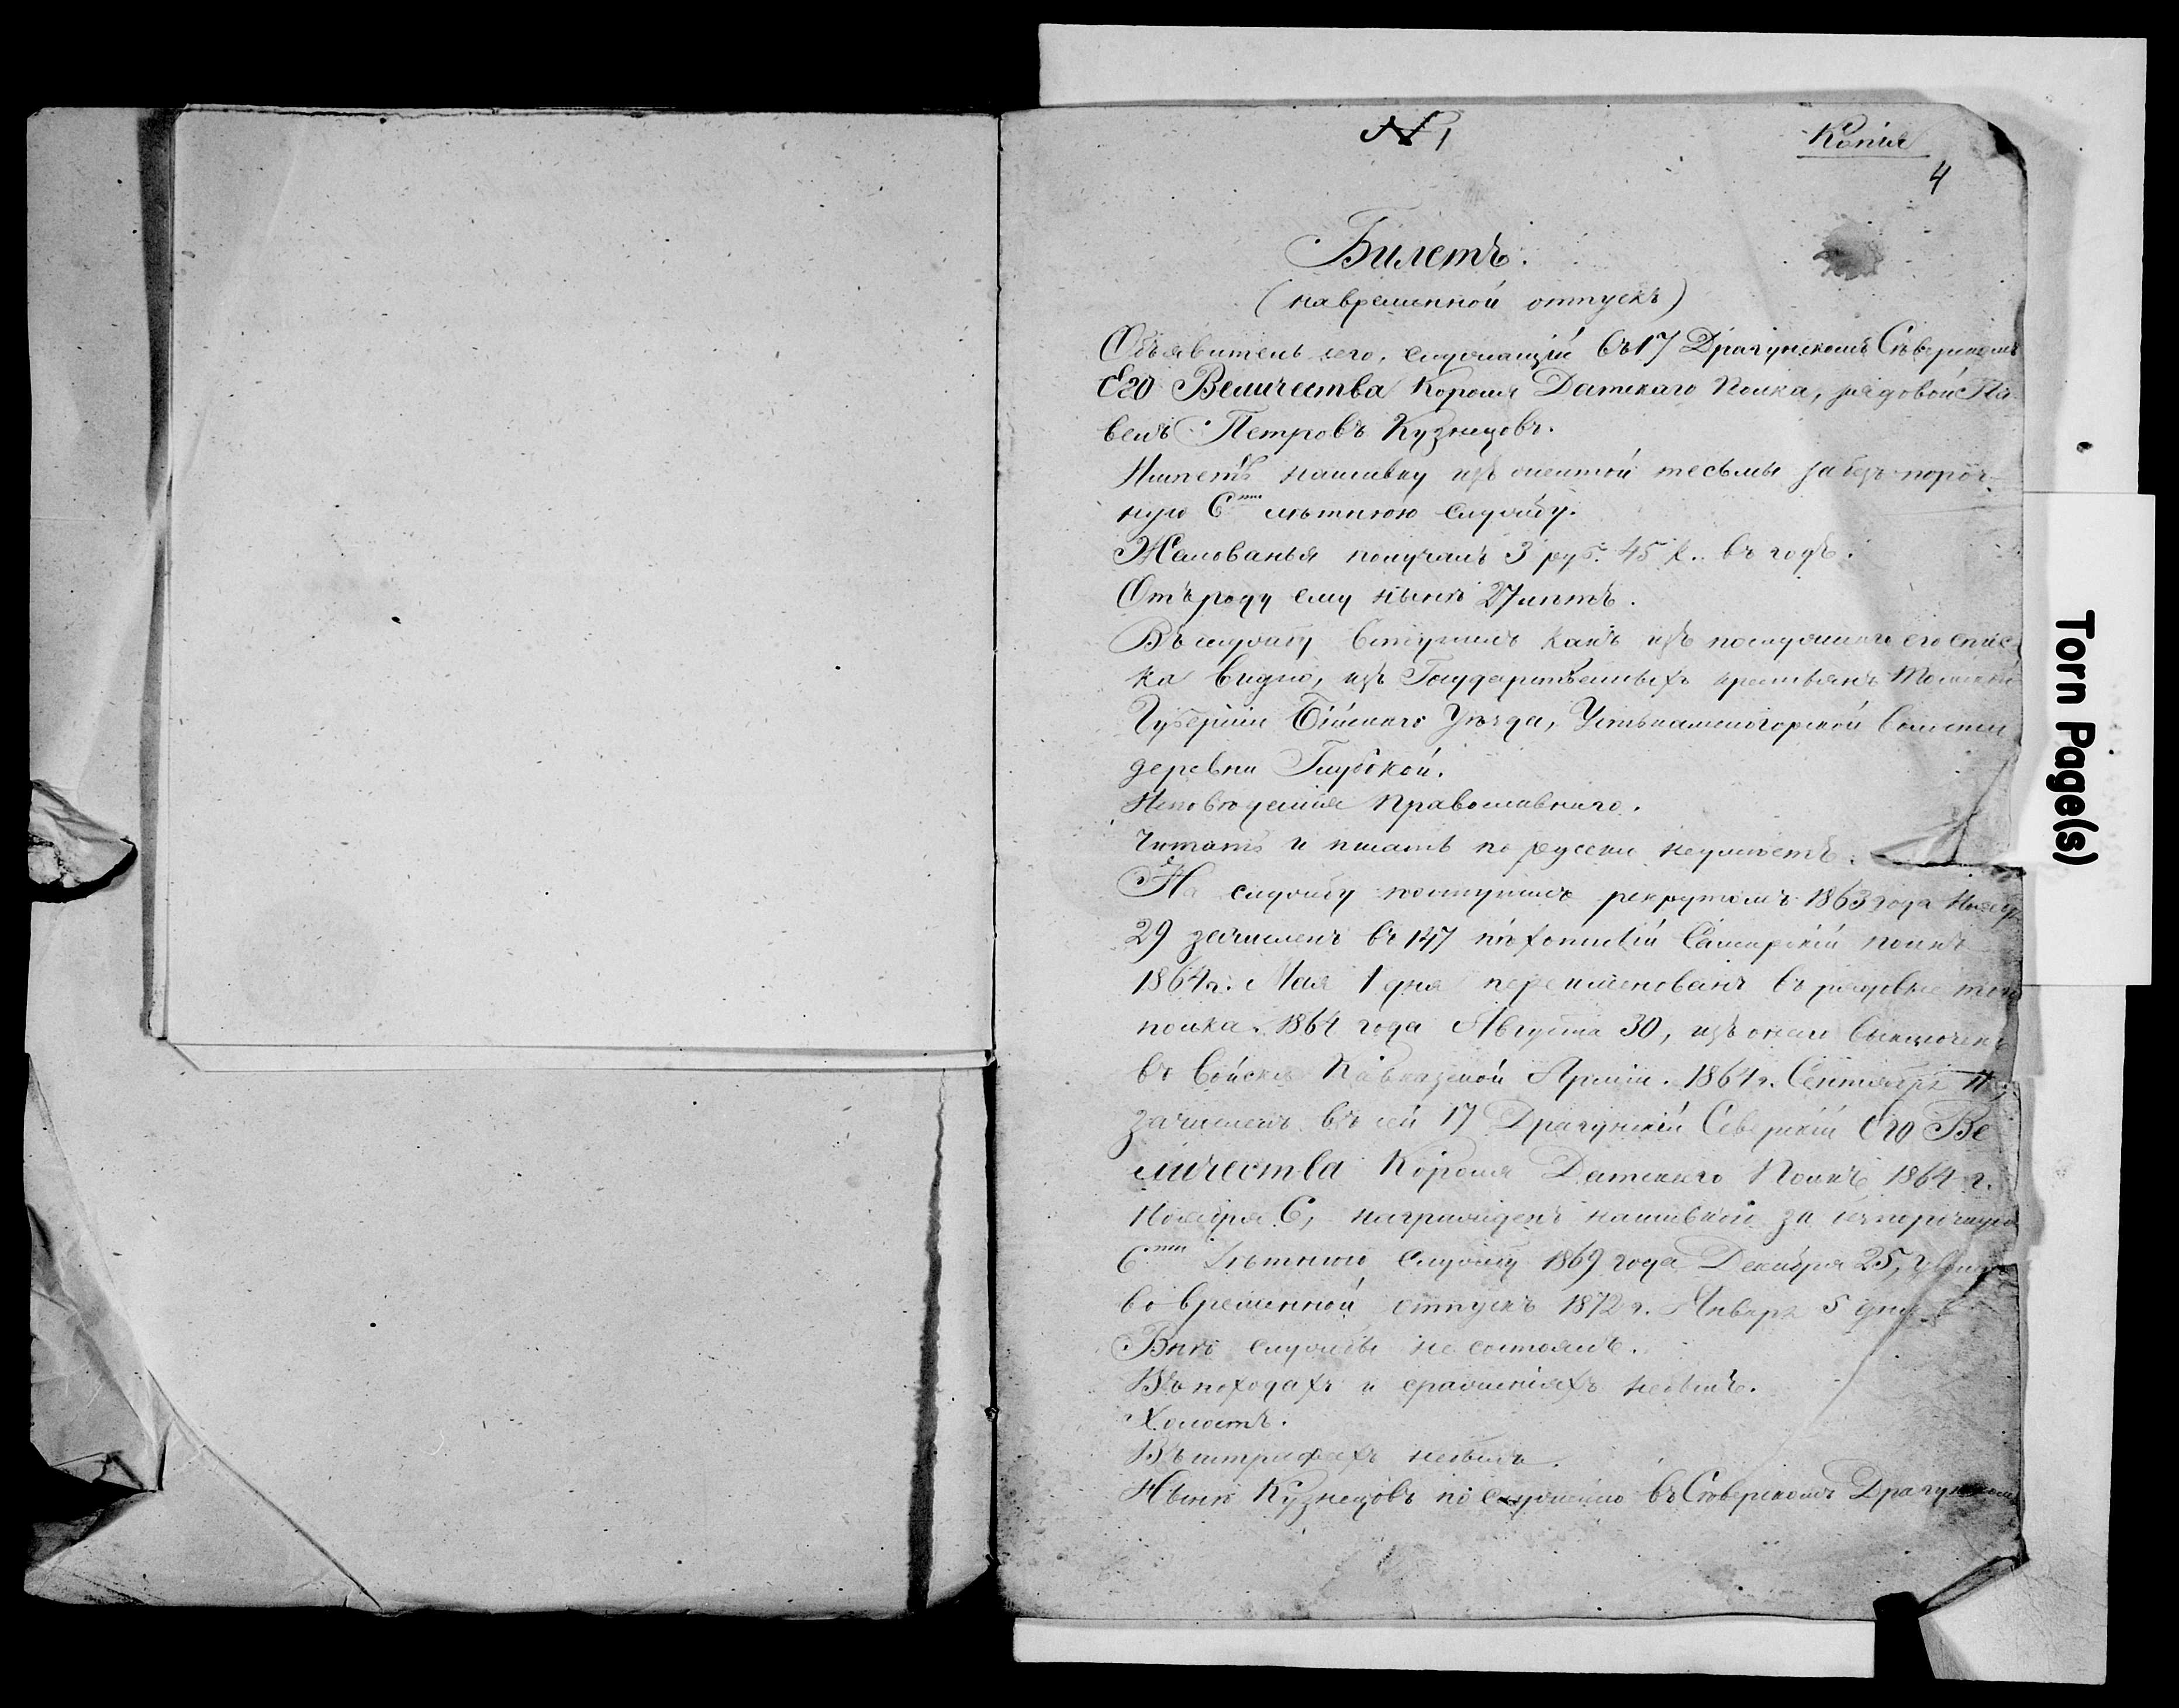 № 1
Копія
4
Билетъ.
(на временной отпускъ)
Объявитель сего, служащій въ 17 Драгунскомъ Сѣверскомъ
Его Величества Короля Датскаго Полка, рядовой Па-
велъ Петровъ Кузнецовъ.
Имѣетъ нашивку изъ желтой тесьмы за безпороч-
ную 6ти лѣтнюю службу.
Жалованья получалъ 3 руб. 45 к. въ годъ.
Отъ роду ему нынѣ 27 лѣтъ.
Въ службу вступилъ какъ изъ послужнаго его спис-
ка видно, изъ Государственныхъ крестьянъ Томской
Губерніи Бійскаго Уѣзда, Устькаменогорской волости
деревни Глубокой.
Исповѣданія Православнаго.
Читать и писать по русски неумѣетъ.
На службу поступилъ рекрутомъ 1863 года
29 зачисленъ въ 147 пѣхотный Самарскій полкъ
1864 г. Мая 1 дня переименованъ въ рядовые того
полка. 1864 года Августа 30, изъ онаго выключенъ
въ войска Кавказской Арміи. 1864 г. Сентября
зачисленъ въ сей 17 Драгунскій Сѣверскій Его Ве
личества Короля Датскаго Полкъ 1864 г.
Ноября 6, награжденъ нашивкой за безпорочную
6ти лѣтнюю службу 1869 года Декабря 25,
во временной отпускъ 1872 г. Января 5 дня
Внѣ службы не состоялъ.
Въ походахъ и сраженіяхъ небылъ.
Холостъ.
Въ штрафахъ небылъ.
Нынѣ Кузнецовъ по служенію въ Сѣверскомъ Драгунскомъ
Torn Page(s)